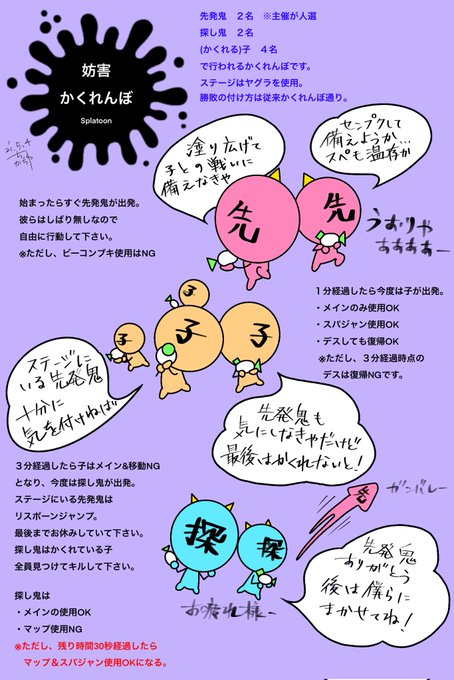 妨害
かくれんぼ
Splatoon
21.5.4
先発鬼　２名　※主催が人選
探し鬼　２名
(かくれる)子　４名
で行われるかくれんぼです。
ステージはヤグラを使用。
勝敗の付け方は従来かくれんぼ通り。
塗り広げて
子との戦いに
備えなきゃ
センプクして
備えようか
スペも温存か
先
先
うおりゃ
ああああー
始まったらすぐ先発鬼が出発。
彼らはしばり無しなので
自由に行動して下さい。
※ただし、ビーコンブキ使用はNG
１分経過したら今度は子が出発。
・メインのみ使用OK
・スパジャン使用OK
・デスしても復帰OK
※ただし、３分経過時点の
デスは復帰NGです。
子
子
子
子
ステージに
いる先発鬼
十分に
気を付けねば
先発鬼も
気にしなきゃだけど
最後はかくれないと！
３分経過したら子はメイン&移動NG
となり、今度は探し鬼が出発。
ステージにいる先発鬼は
リスポーンジャンプ。
最後までお休みしていて下さい。
探し鬼はかくれている子
全員見つけてキルして下さい。
先
ガンバレー
探
探
お疲れ様ー
先発鬼
ありがとう
後は僕らに
まかせてね！
探し鬼は
・メインの使用OK
・マップ使用NG
※ただし、残り時間30秒経過したら
マップ＆スパジャン使用OKになる。